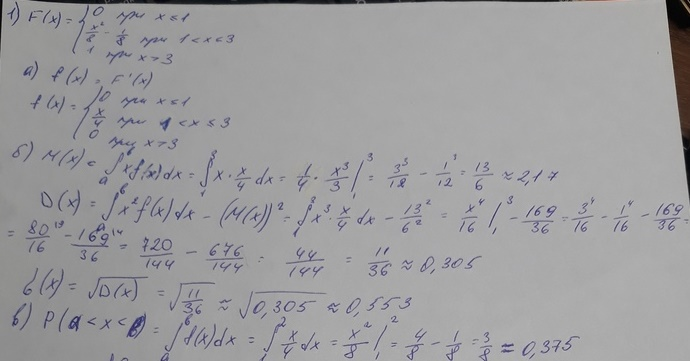 1) F(x) = { 0 при x ≤ 1
x²/8 - 1/8 при 1 < x ≤ 3
1 при x > 3
а) f(x) = F'(x)
f(x) = { 0 при x ≤ 1
x/4 при 1 < x ≤ 3
0 при x > 3
б) M(x) = ∫ₐᵇ x f(x) dx = ∫₁³ x · x/4 dx = 1/4 · x³/3 |₁³ = 3³/12 - 1³/12 = 13/6 ≈ 2,17
D(x) = ∫ₐᵇ x² f(x) dx - (M(x))² = ∫₁³ x² · x/4 dx - 13²/6² = x⁴/16 |₁³ - 169/36 = 3⁴/16 - 1⁴/16 - 169/36 =
= 80/16 - 169/36 = 720/144 - 676/144 = 44/144 = 11/36 ≈ 0,305
σ(x) = √D(x) = √11/36 ≈ √0,305 ≈ 0,553
в) P( < x < ) = ∫ₐᵇ f(x) dx = ∫₁² x/4 dx = x²/8 |₁² = 4/8 - 1/8 = 3/8 ≈ 0,375